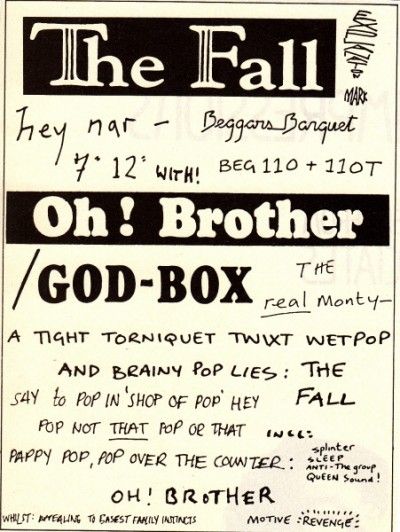 The Fall
MARK
hey nar - Beggars Banquet
7" 12" WITH! BEG 110 + 110T
Oh! Brother
/GOD-BOX THE
real Monty-
A TIGHT TORNIQUET TWIXT WETPOP
AND BRAINY POP LIES: THE
SAY to POP IN 'SHOP OF POP' HEY FALL
POP NOT THAT POP OR THAT INCL:
PAPPY POP, POP OVER THE COUNTER: splinter
SLEEP
ANTI-The group
QUEEN Sound!
OH! BROTHER
WHILST: APPEALING TO BASEST FAMILY INSTINCTS MOTIVE :REVENGE: